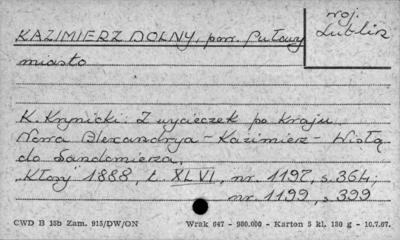 woj.
Lublin
KAZIMIERZ DOLNY, pow. Puławy
miasto
K. Krynicki: Z wycieczek po kraju.
Nowa Alexandrya - Kazimierz - Wisłą
do Sandomierza.
"Kłosy" 1888, t. XLVI, nr. 1197, s. 364;
nr. 1199, s. 399
CWD B 15b Zam. 915/DW/ON Wrak 647 - 980.000 - Karton 5 kl. 180 g - 10.7.67.